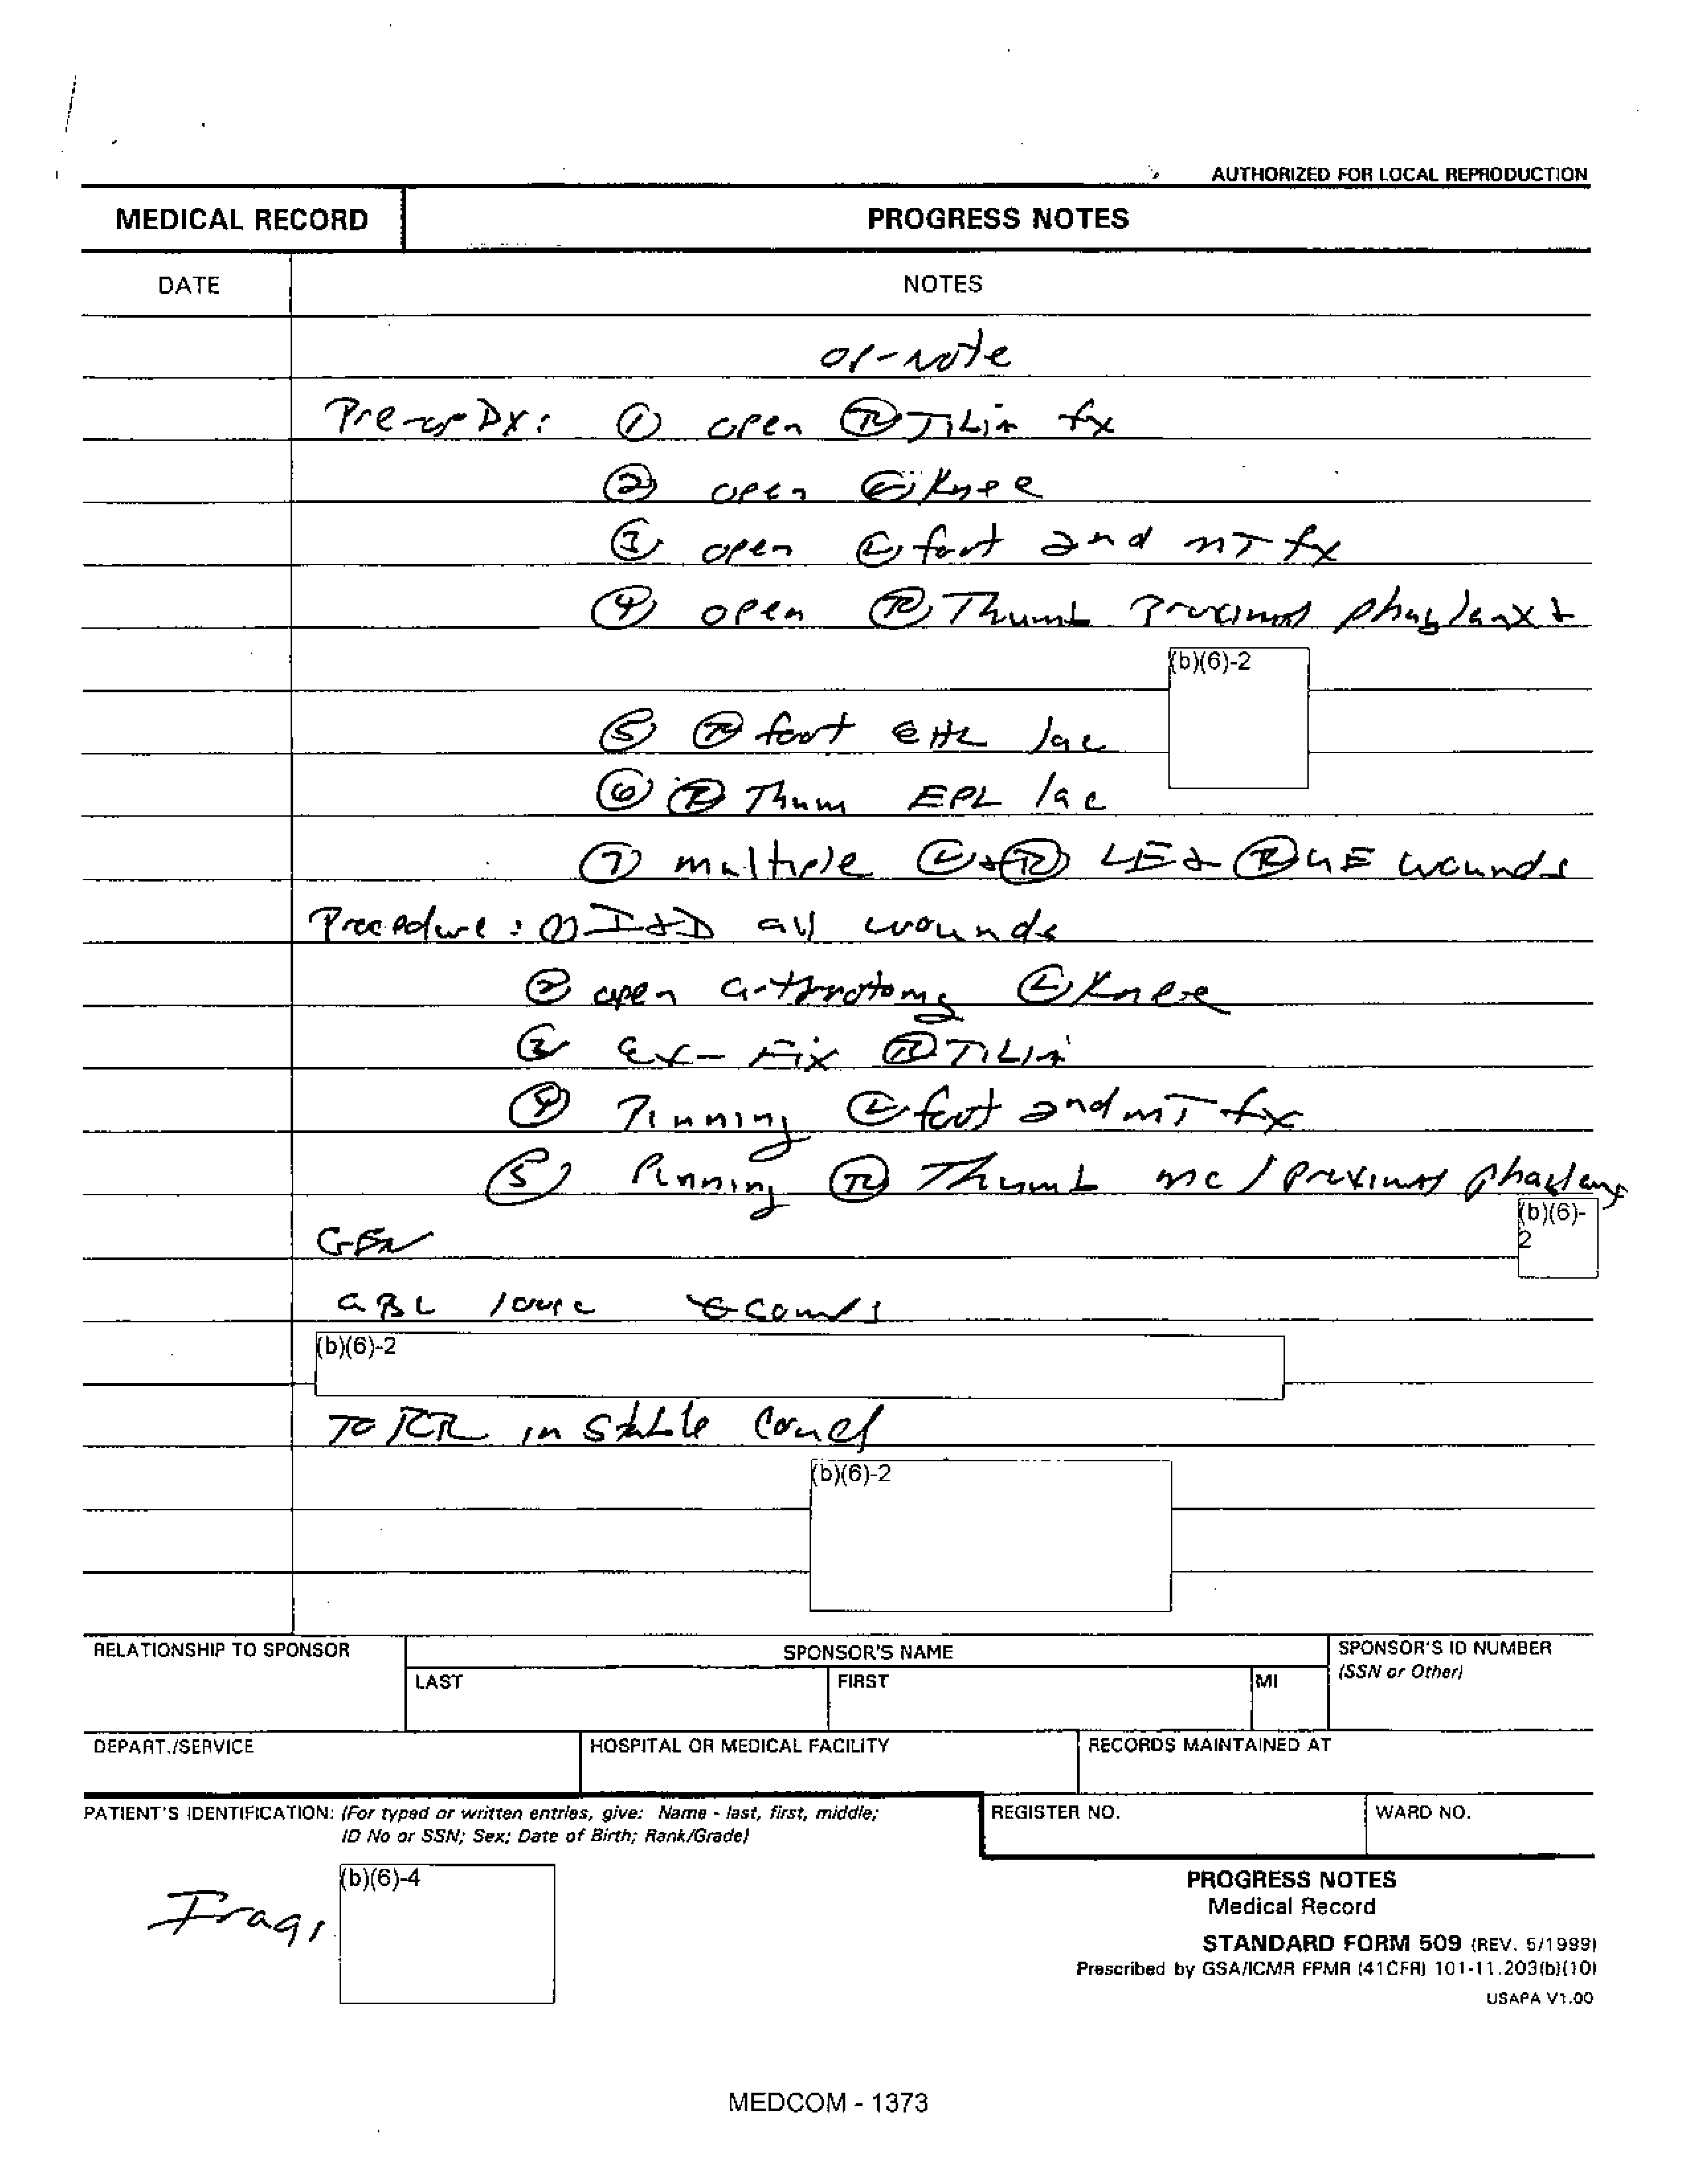 AUTHORIZED FOR LOCAL REPRODUCTION
MEDICAL RECORD PROGRESS NOTES
DATE NOTES
op-note
Pre-op Dx: ① open Ⓡ Tibia fx
② open Ⓛ Knee
③ open Ⓛ foot 2nd MT fx
④ open Ⓡ Thumb Proximal phaglanx +
(b)(6)-2
⑤ Ⓡ foot EHL lac
⑥ Ⓡ Thum EPL lac
⑦ multiple Ⓛ + Ⓡ LE + Ⓡ UE wounds
Procedure: ① I+D all wounds
② open arthrotomy Ⓛ Knee
③ Ex-Fix Ⓡ Tibia
④ Pinning Ⓛ foot 2nd MT fx
⑤ Pinning Ⓡ Thumb mc / proximal
(b)(6)-2
GEN
EBL
(b)(6)-2
To RR in Stable Cond
(b)(6)-2
RELATIONSHIP TO SPONSOR SPONSOR'S NAME SPONSOR'S ID NUMBER
LAST FIRST MI (SSN or Other)
DEPART./SERVICE HOSPITAL OR MEDICAL FACILITY RECORDS MAINTAINED AT
PATIENT'S IDENTIFICATION: (For typed or written entries, give: Name - last, first, middle; REGISTER NO. WARD NO.
ID No or SSN; Sex; Date of Birth; Rank/Grade)
(b)(6)-4
Iraqi
PROGRESS NOTES
Medical Record
STANDARD FORM 509 (REV. 5/1999)
Prescribed by GSA/ICMR FPMR (41CFR) 101-11.203(b)(10)
USAPA V1.00
MEDCOM - 1373